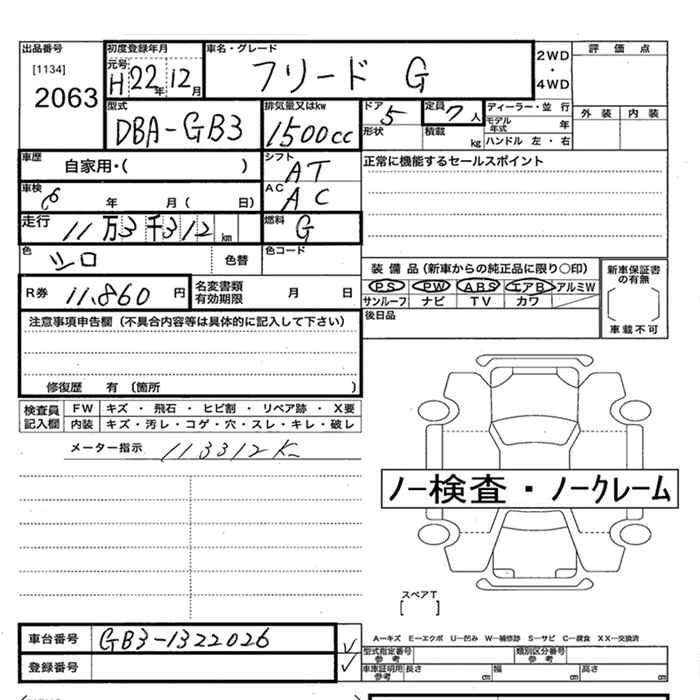 出品番号 初度登録年月 車名・グレード 2WD・4WD 評価点
[1134] 元号 H22年12月 フリード G
2063
型式 排気量又はkw ドア 5 定員 7人 ディーラー・並行 外装 内装
DBA-GB3 1500cc 形状 積載 kg モデル年式 年
ハンドル 左・右
車歴 自家用・( ) シフト AT 正常に機能するセールスポイント
車検 年 月( 日) AC AC
走行 11万3千312km 燃料 G
色 シロ 色替 色コード
装備品(新車からの純正品に限り○印) 新車保証書の有無
R券 11,860円 名変書類有効期限 月 日 PS PW ABS エアB アルミW
サンルーフ ナビ TV カワ 車載不可
注意事項申告欄(不具合内容等は具体的に記入して下さい) 後日品
修復歴 有(箇所 )
検査員記入欄 FW キズ・飛石・ヒビ割・リペア跡・X要
内装 キズ・汚レ・コゲ・穴・スレ・キレ・破レ
メーター指示 113312K
ノー検査・ノークレーム
スペアT
[ ]
車台番号 GB3-1322026
A-キズ E-エクボ U-凹み W-補修跡 S-サビ C-腐食 XX-交換済
型式指定番号 参考 類別区分番号 参考
登録番号 車庫証明用 参考 長さ cm 幅 cm 高さ cm